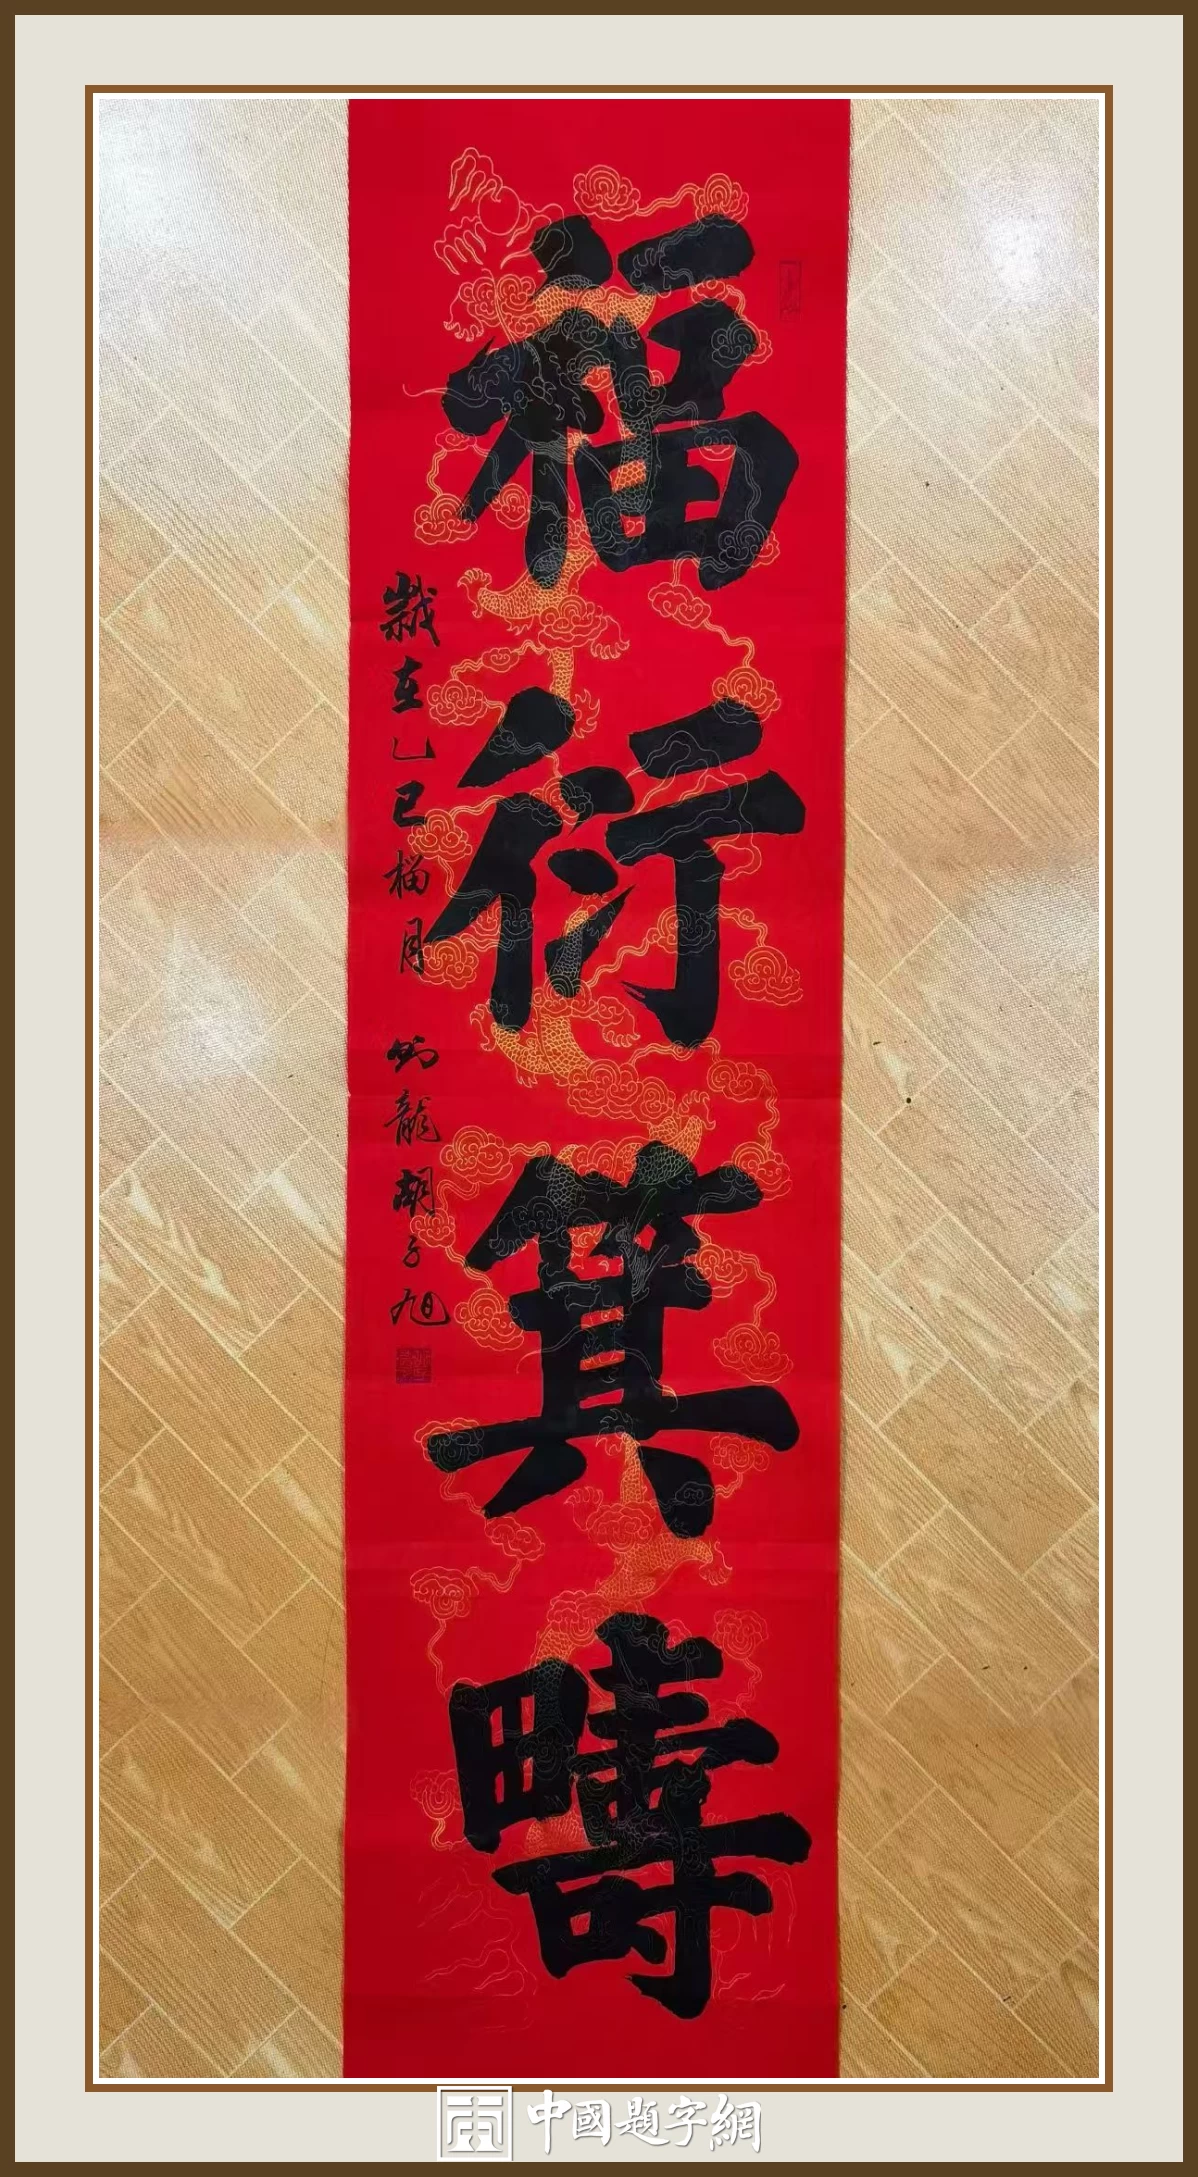 福衍箕疇
歲在乙巳榴月 龍胡子旭
中國題字網